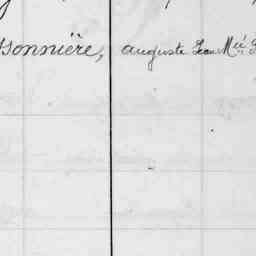 ssonnière, auguste Jean Mie